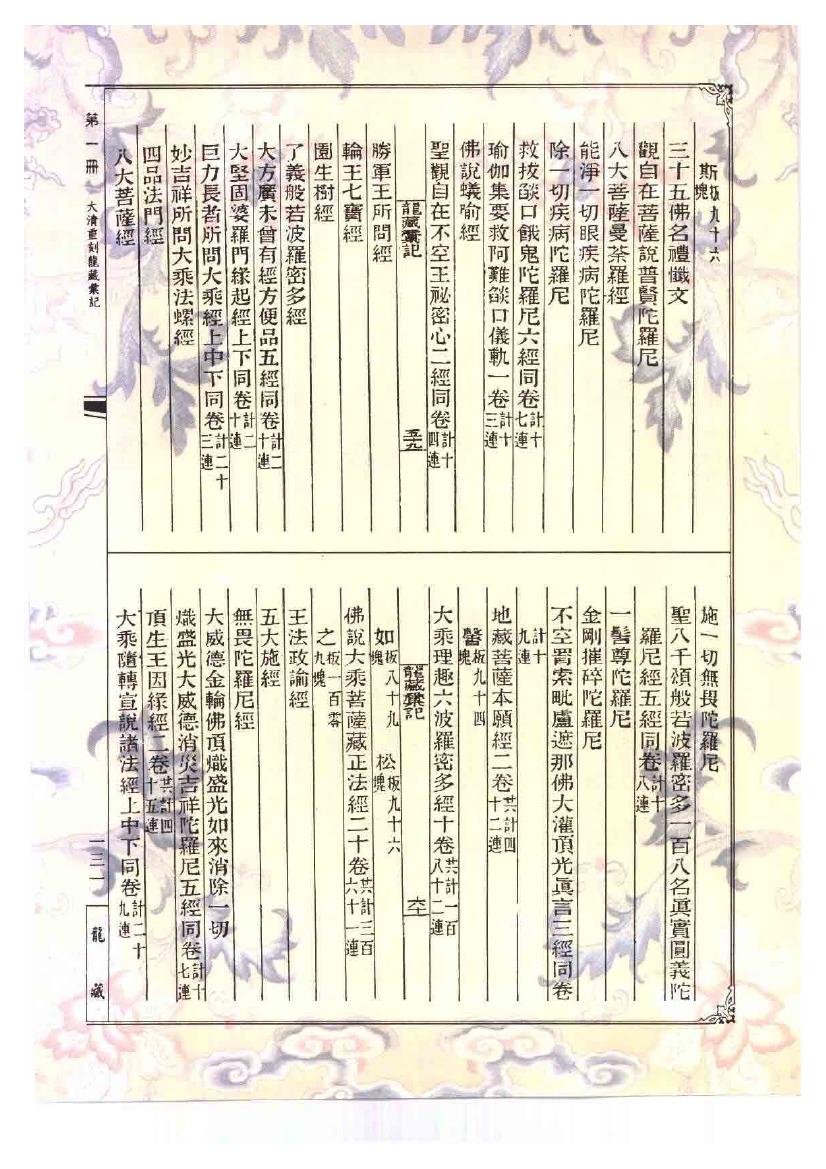 斯板九十六塊
三十五佛名禮懺文
觀自在菩薩說普賢陀羅尼
八大菩薩曼荼羅經
能淨一切眼疾病陀羅尼
除一切疾病陀羅尼
救拔燄口餓鬼陀羅尼六經同卷計十七連
瑜伽集要救阿難燄口儀軌一卷計十三連
佛說蟻喻經
聖觀自在不空王祕密心二經同卷計十四連
龍藏彙記 五十九
勝軍王所問經
輪王七寶經
園生樹經
了義般若波羅密多經
大方廣未曾有經方便品五經同卷計二十連
大堅固婆羅門緣起經上下同卷計二十連
巨力長者所問大乘經上中下同卷計二十三連
妙吉祥所問大乘法螺經
四品法門經
八大菩薩經
施一切無畏陀羅尼
聖八千頌般若波羅密多一百八名眞實圓義陀
羅尼經五經同卷計十八連
一髻尊陀羅尼
金剛摧碎陀羅尼
不空罥索毗盧遮那佛大灌頂光眞言三經同卷
計十九連
地藏菩薩本願經二卷共計四十二連
馨板九十四塊
大乘理趣六波羅密多經十卷共計一百八十二連
龍藏彙記 六十
如板八十九塊 松板九十六塊
佛說大乘菩薩藏正法經二十卷共計三百六十一連
之板一百零九塊
王法政論經
五大施經
無畏陀羅尼經
大威德金輪佛頂熾盛光如來消除一切
熾盛光大威德消災吉祥陀羅尼五經同卷計十七連
頂生王因緣經二卷共計四十五連
大乘隨轉宣說諸法經上中下同卷計二十九連
第一冊 大清重刻龍藏彙記
一三一
龍藏